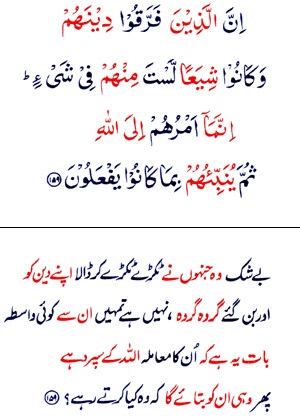 اِنَّ الَّذِیْنَ فَرَّقُوْا دِیْنَهُمْ
وَكَانُوْا شِیَعًا لَّسْتَ مِنْهُمْ فِیْ شَیْءٍ ؕ
اِنَّمَاۤ اَمْرُهُمْ اِلَی اللّٰهِ
ثُمَّ یُنَبِّئُهُمْ بِمَا كَانُوْا یَفْعَلُوْنَ ﴿۱۵۹﴾
بے شک وہ جنہوں نے ٹکڑے ٹکڑے کر ڈالا اپنے دین کو
اور بن گئے گروہ گروہ ، نہیں ہے تمہیں ان سے کوئی واسطہ
بات یہ ہے کہ اُن کا معاملہ اللہ کے سپرد ہے
پھر وہی ان کو بتائے گا کہ وہ کیا کرتے رہے ؟ ﴿۱۵۹﴾